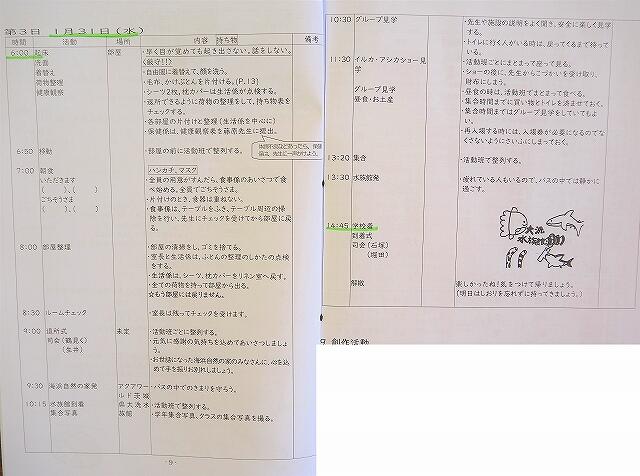 第3日 1月31日(水)
時間 活動 場所 内容 持ち物 備考
6:00 起床 部屋 ・早く目が覚めても起き出さない。話をしない。
洗面 (厳守!!)
着替え ・自由服に着替えて、顔を洗う。
荷物整理 ・毛布、かけぶとんを片付ける。(P.13)
健康観察 ・シーツ2枚、枕カバーは生活係が点検する。
・返所できるように荷物の整理をして、持ち物表を
チェックする。
・各部屋の片付けと整理(生活係を中心に)
・保健係は、健康観察表を藤原先生に提出。
6:50 移動 ・部屋の前に活動班で整列する。
7:00 朝食 ハンカチ、マスク
いただきます ・全員の用意がすんだら、食事係のあいさつで食
( )、( ) べ始める。全員でごちそうさま。
ごちそうさま ・片付けのとき、食器は重ねない。
( )、( ) ・食事係は、テーブルをふき、テーブル周辺の掃
除を行い、先生にチェックを受けてから部屋に戻
る。
8:00 部屋整理 ・部屋の清掃をし、ゴミを捨てる。
・室長と生活係は、ふとんの整理のしかたの点検
をする。
・生活係は、シーツ、枕カバーをリネン室へ戻す。
・全ての荷物を持って部屋から出る。
☆もう部屋には戻りません。
8:30 ルームチェック ・室長は残ってチェックを受けます。
9:00 退所式 未定 ・活動班ごとに整列する。
司会(鶴見く) ・元気に感謝の気持ちを込めてあいさつしましょ
う。
・お世話になった海浜自然の家のみなさんに、心を込
めて手を振りお別れしましょう。
9:30 海浜自然の家発 アクアワー ・バスの中でのきまりを守ろう。
ルド茨城
10:15 水族館到着 県大洗水 ・活動班で整列する。
集合写真 族館 ・学年集合写真、クラスの集合写真を撮る。
-9-
10:30 グループ見学 ・先生や施設の説明をよく聞き、安全に楽しく見学
する。
・トイレに行く人がいる時は、戻ってくるまで待って
いる。
11:30 イルカ・アシカショー見 ・活動班ごとにまとまって座って見る。
学 ・ショーの後に、先生からこづかいを受け取り、
財布にしまう。
グループ見学 ・昼食の時は、活動班でまとまって食べる。
昼食・お土産 ・集合時間までに買い物とトイレを済ませておく。
・集合時間まではグループ見学をしていてもよ
い。
・再入場する時には、入場券が必要になるのでな
くさないようにさいふにしまっておく。
13:20 集合 ・活動班で整列する。
13:30 水族館発 ・疲れている人もいるので、バスの中では静かに
過ごす。
14:45 学校着
到着式
司会(石塚)
(堀田)
大洗
水族館
解散 楽しかったね!気をつけて帰りましょう。
(明日はしおりを忘れずに持ってきましょう。)
創作活動